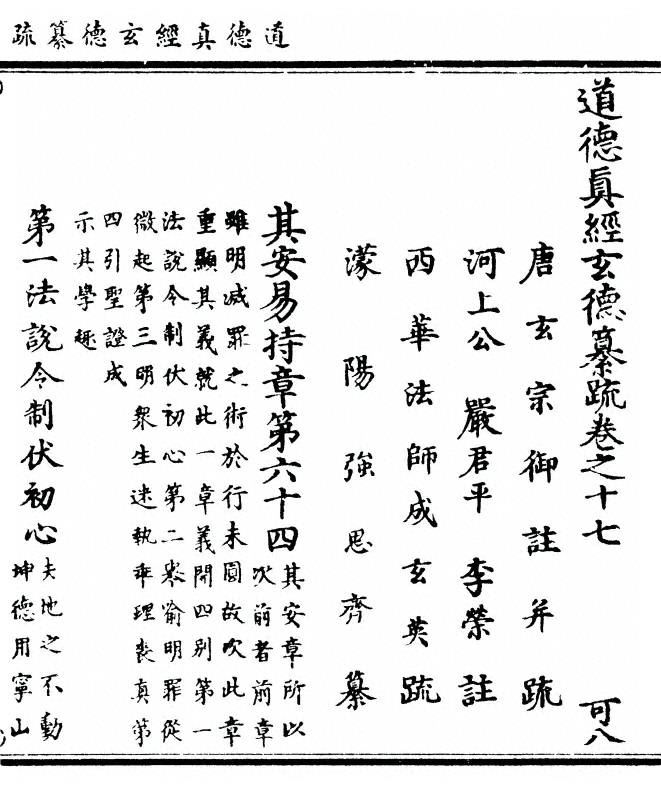 道德真經玄德纂疏
道德眞經玄德纂疏卷之十七 可八
唐玄宗御註并疏
河上公 嚴君平 李榮註
西華法師成玄英疏
濛陽強思齊纂
其安易持章第六十四
其安章所以
次前者前章
雖明滅罪之術於行未圓故次此章
重顯其義就此一章義開四別第一
法說令制伏初心第二舉喻明罪從
微起第三明衆生迷執乖理喪真第
四引聖證成
示其學趣
第一法說令制伏初心
夫地之不動
坤德用寧山